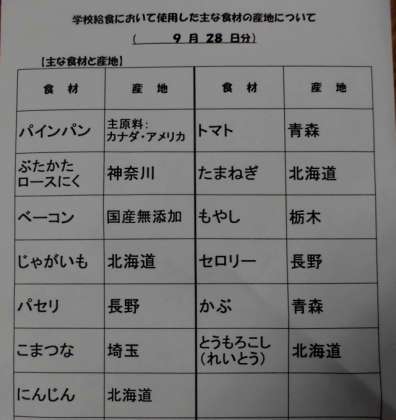 学校給食において使用した主な食材の産地について
( 9 月 28 日分)
【主な食材と産地】
食 材 産 地 食 材 産 地
パインパン 主原料: カナダ・アメリカ トマト 青森
ぶたかたロースにく 神奈川 たまねぎ 北海道
ベーコン 国産無添加 もやし 栃木
じゃがいも 北海道 セロリー 長野
パセリ 長野 かぶ 青森
こまつな 埼玉 とうもろこし(れいとう) 北海道
にんじん 北海道